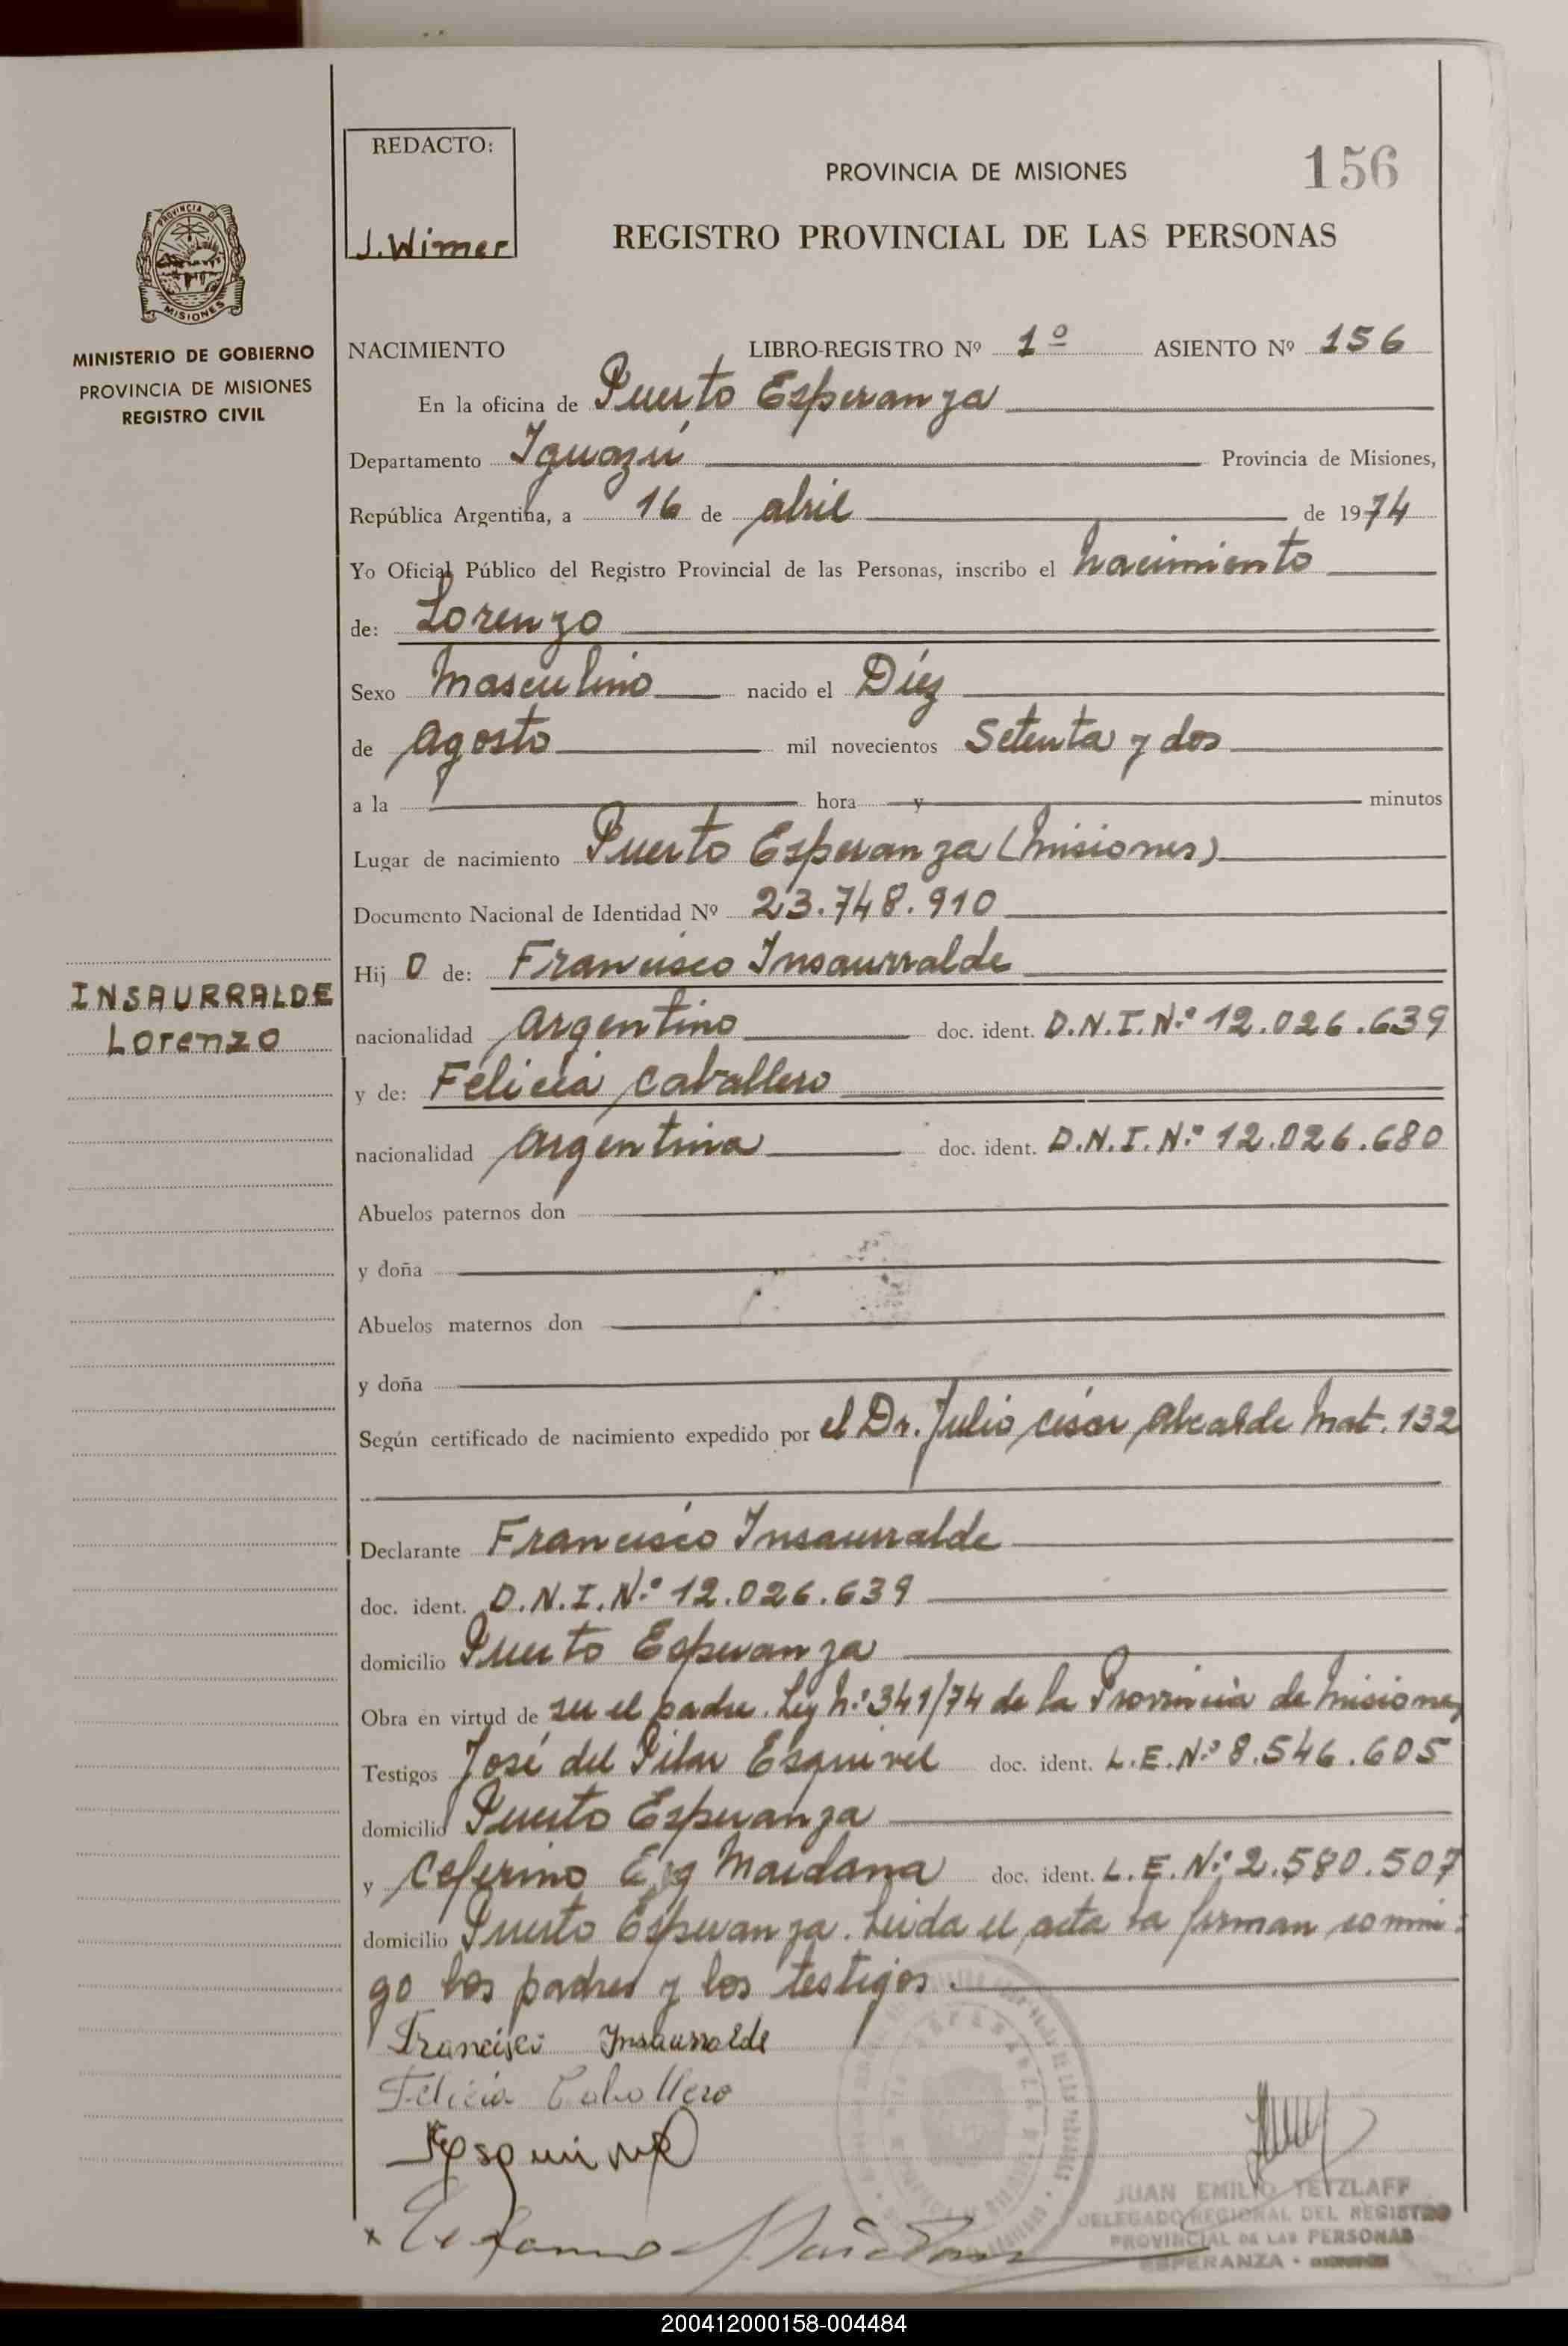 REDACTO:
J. Wimer
PROVINCIA DE MISIONES
156
REGISTRO PROVINCIAL DE LAS PERSONAS
PROVINCIA DE
MISIONES
MINISTERIO DE GOBIERNO
PROVINCIA DE MISIONES
REGISTRO CIVIL
NACIMIENTO LIBRO-REGISTRO Nº 1º ASIENTO Nº 156
En la oficina de Puerto Esperanza
Departamento Iguazú Provincia de Misiones,
República Argentina, a 16 de abril de 1974
Yo Oficial Público del Registro Provincial de las Personas, inscribo el nacimiento
de: Lorenzo
Sexo Masculino nacido el Díez
de agosto mil novecientos Setenta y dos
a la hora y minutos
Lugar de nacimiento Puerto Esperanza (Misiones)
Documento Nacional de Identidad Nº 23.748.910
Hij o de: Francisco Insaurralde
INSAURRALDE
Lorenzo
nacionalidad argentino doc. ident. D.N.I. Nº 12.026.639
y de: Felicia Caballero
nacionalidad argentina doc. ident. D.N.I. Nº 12.026.680
Abuelos paternos don
y doña
Abuelos maternos don
y doña
Según certificado de nacimiento expedido por el Dr. Julio césar Alcalde Mat. 132
Declarante Francisco Insaurralde
doc. ident. D.N.I. Nº 12.026.639
domicilio Puerto Esperanza
Obra en virtud de ser el padre. Ley Nº 341/74 de la Provincia de Misiones
Testigos José del Pilar Esquivel doc. ident. L.E. Nº 8.546.605
domicilio Puerto Esperanza
y Ceferino Maidana doc. ident. L.E. Nº 2.580.507
domicilio Puerto Esperanza. Leida el acta la firman conmi-
go los padres y los testigos.
Francisco Insaurralde
Felicia Caballero
Esquivel
JUAN EMILIO TETZLAFF
DELEGADO REGIONAL DEL REGISTRO
PROVINCIAL DE LAS PERSONAS
ESPERANZA -
200412000158-004484